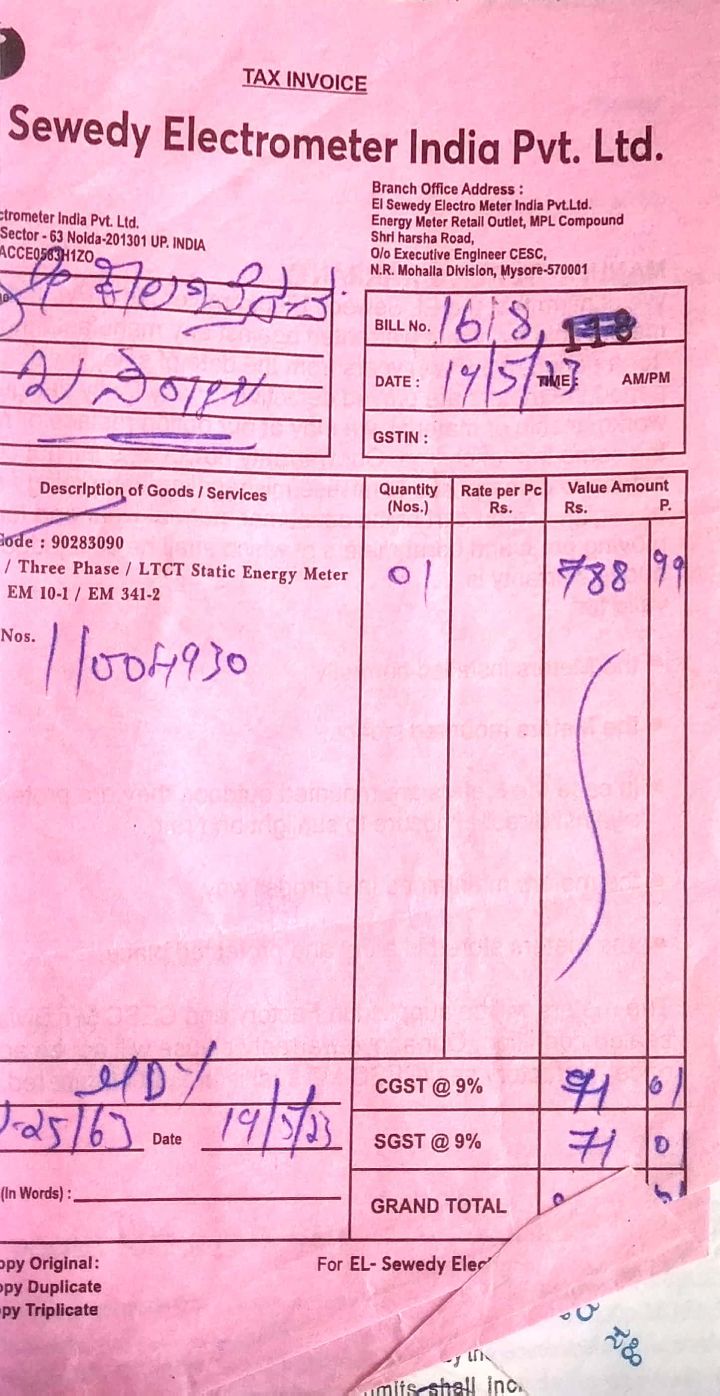 TAX INVOICE
Sewedy Electrometer India Pvt. Ltd.
ctrometer India Pvt. Ltd.
Sector - 63 Noida-201301 UP. INDIA
ACCE0563H1ZO
Branch Office Address :
El Sewedy Electro Meter India Pvt.Ltd.
Energy Meter Retail Outlet, MPL Compound
Shri harsha Road,
O/o Executive Engineer CESC,
N.R. Mohalla Division, Mysore-570001
BILL No. 1618, 118
DATE : 19/5/23 TIME : AM/PM
GSTIN :
Description of Goods / Services
Quantity (Nos.)
Rate per Pc Rs.
Value Amount Rs. P.
Code : 90283090
/ Three Phase / LTCT Static Energy Meter 01 788 99
EM 10-1 / EM 341-2
Nos. 11004930
CGST @ 9% 71 01
25/63 Date 19/5/23 SGST @ 9% 71 01
(In Words) :
GRAND TOTAL
opy Original:
opy Duplicate
opy Triplicate
For EL- Sewedy Elec
limits shall inc.